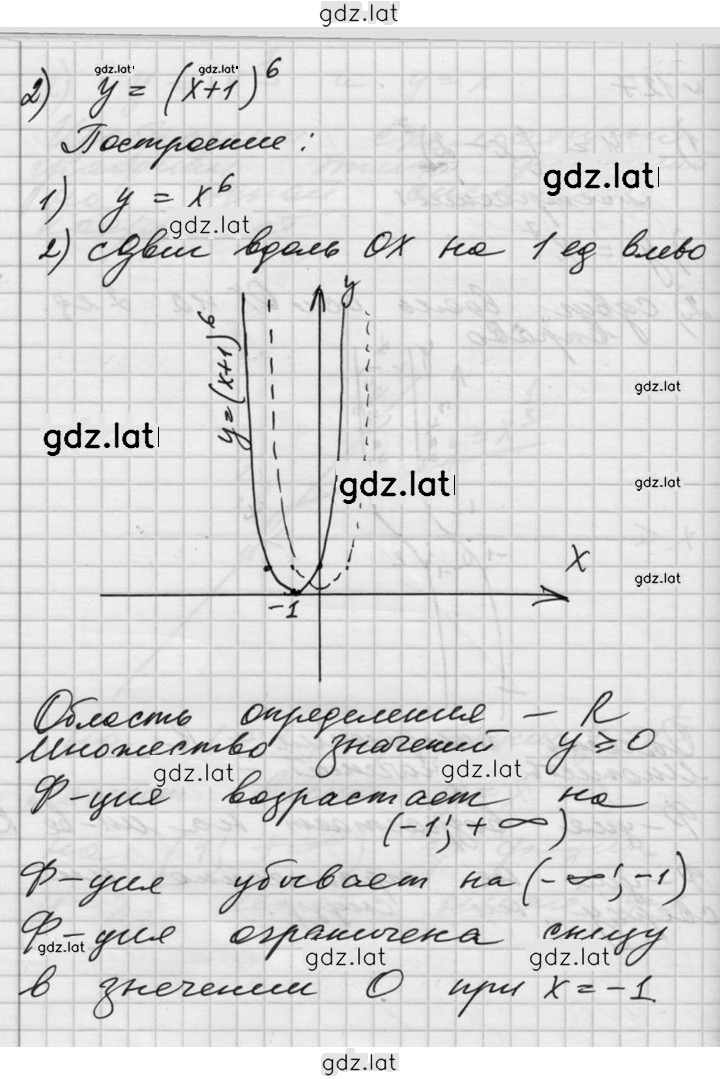 gdz.lat
2) y = (x+1)^6
gdz.lat gdz.lat
Построение:
1) y = x^6
gdz.lat
gdz.lat
2) сдвиг вдоль OX на 1 ед влево
y
y=(x+1)^6
gdz.lat
gdz.lat
gdz.lat
gdz.lat
X
gdz.lat
-1
Область определения – R
Множество значений y ≥ 0
gdz.lat gdz.lat
Ф-ция возрастает на
(-1; +∞)
Ф-ция убывает на (-∞; -1)
Ф-ция ограничена снизу
gdz.lat
gdz.lat gdz.lat
в значении 0 при x = -1
gdz.lat